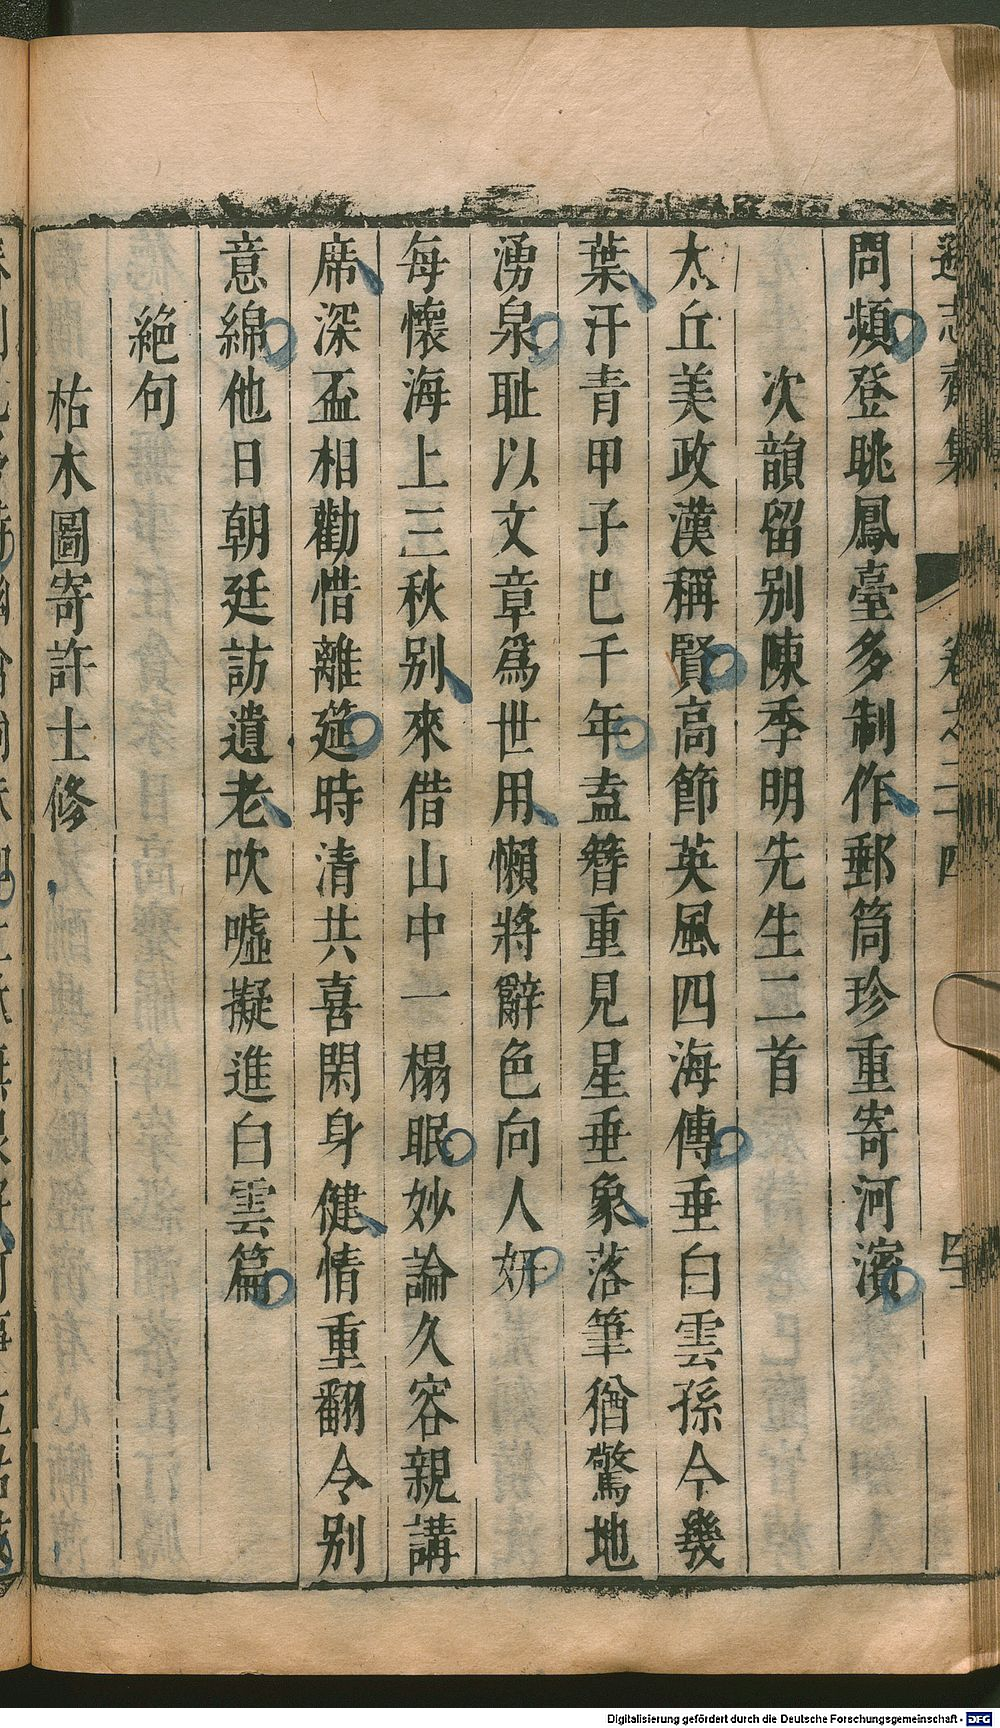 遜志齋集 卷之二十四
問頻登眺鳳臺多制作郵筒珍重寄河濱
次韻留别陳季明先生二首
太丘美政漢稱賢高節英風四海傳垂白雲孫今幾
葉汗青甲子巳千年盍簪重見星垂象落筆猶驚地
湧泉耻以文章爲世用懶將辭色向人妍
每懷海上三秋别來借山中一榻眠妙論久容親講
席深盃相勸惜離筵時清共喜閑身健情重翻令别
意綿他日朝廷訪遺老吹噓擬進白雲篇
絶句
枯木圖寄許士修
Digitalisierung gefördert durch die Deutsche Forschungsgemeinschaft - DFG